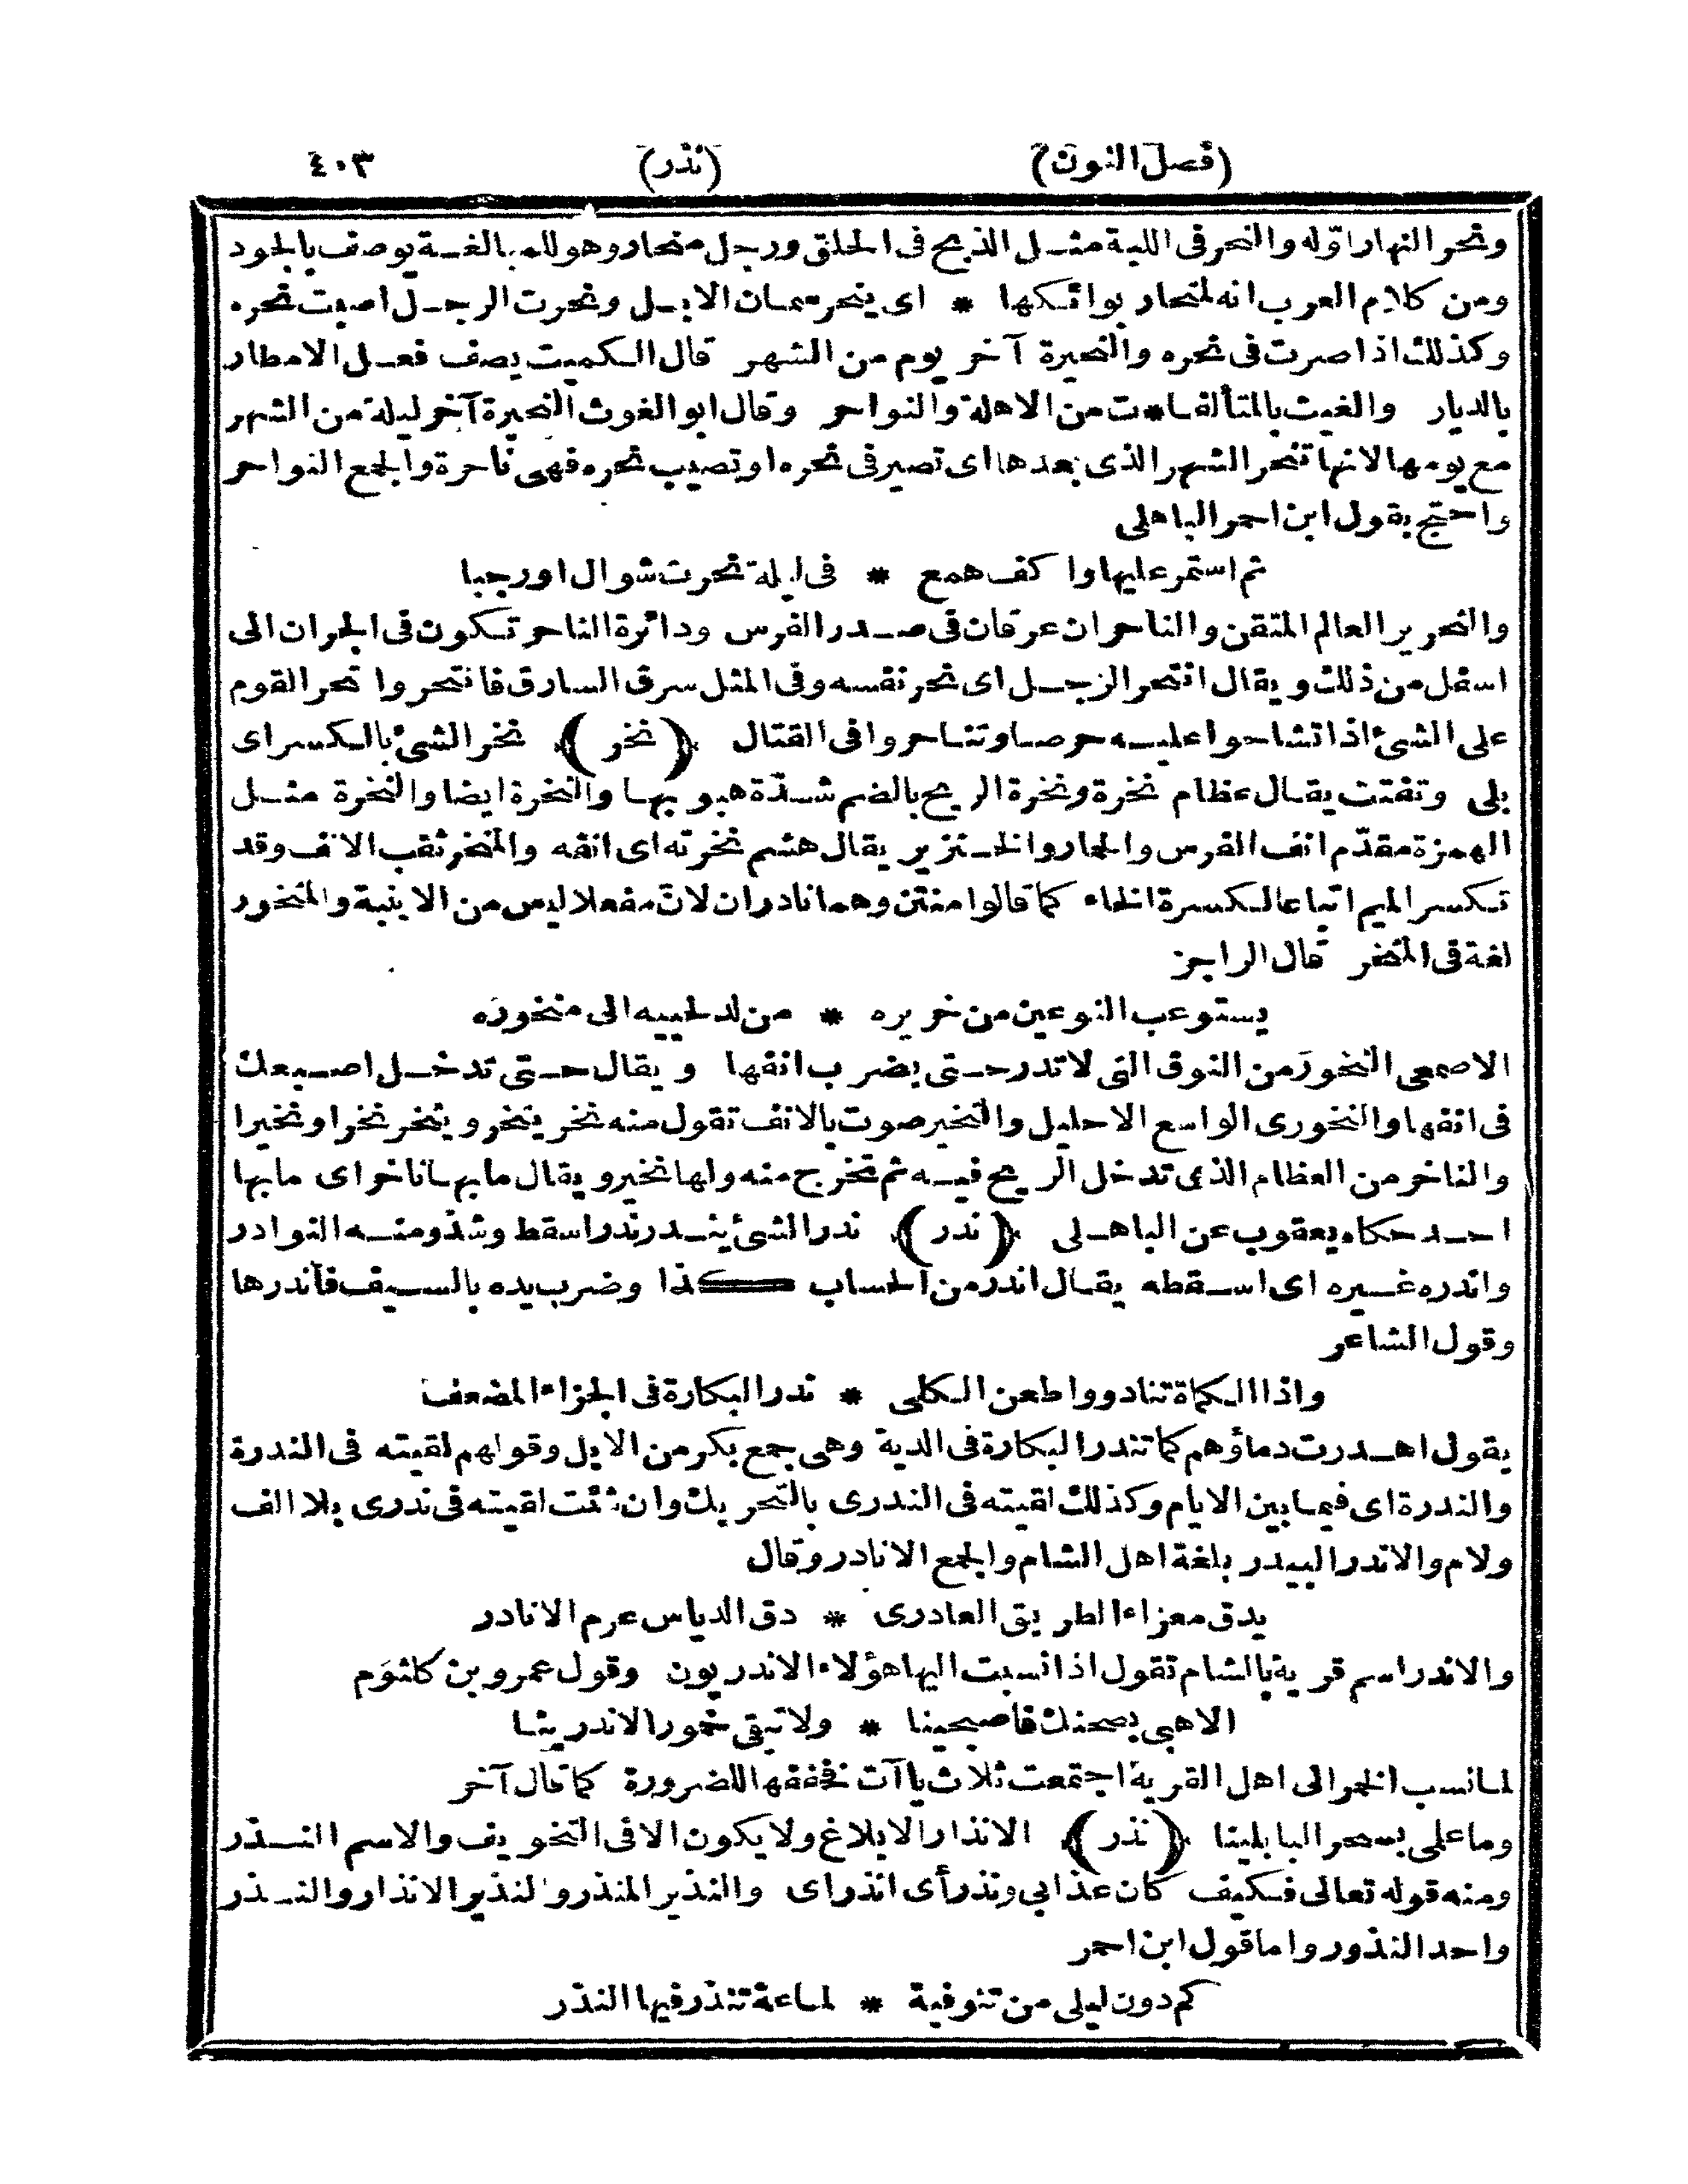 (فصل النون) (نذر) ٤٠٣
ونحر النهار اوّله والنحر فى اللبة مثل الذبح فى الحلق ورجل منحار وهو للمبالغة يوصف بالجود
ومن كلام العرب انه لمنحار بوائكها * اى ينحر سمان الابل ونحرت الرجل اصبت نحره
وكذلك اذا صرت فى نحره والنحيرة آخر يوم من الشهر قال الكميت يصف فعل الامطار
بالديار والغيث بالمتألقا*ت من الاهلة والنواحر وقال ابو الغوث النحيرة آخر ليلة من الشهر
مع يومها لانها تنحر الشهر الذى بعدها اى تصير فى نحره او تصيب نحره فهى ناحرة والجمع النواحر
واحتج بقول ابن احمر الباهلى
ثم استمر عليها واكف همع * فى ليلة نحرت شوال او رجبا
والنحرير العالم المتقن والناحران عرقان فى صدر الفرس ودائرة الناحر تكون فى الجران الى
اسفل من ذلك ويقال انتحر الرجل اى نحر نفسه وفى المثل سرق السارق فانتحر وانتحر القوم
على الشئ اذا تشاحوا عليه حرصا وتناحروا فى القتال (نخر) نخر الشئ بالكسر اى
بلى وتفتت يقال عظام نخرة ونخرة الريح بالضم شدّة هبوبها والنخرة ايضا والنخرة مثل
الهمزة مقدّم انف الفرس والحمار والخنزير يقال هشم نخرته اى انفه والمنخر ثقب الانف وقد
تكسر الميم اتباعا لكسرة الخاء كما قالوا منتن وهما نادران لانّ مفعلا ليس من الابنية والمنخور
لغة فى المنخر قال الراجز
يستوعب النوعين من خريره * من لد لحييه الى منخوره
الاصمعى النخور من النوق التى لا تدر حتى يضرب انفها ويقال حتى تدخل اصبعك
فى انفها والنخورى الواسع الاحليل والنخير صوت بالانف تقول منه نخر ينخر وينخر نخرا ونخيرا
والناخر من العظام الذى تدخل الريح فيه ثم تخرج منه ولها نخير ويقال ما بها ناخر اى ما بها
احد حكاه يعقوب عن الباهلى (ندر) ندر الشئ يندر ندرا سقط وشذ ومنه النوادر
واندره غيره اى اسقطه يقال اندر من الحساب كذا وضرب يده بالسيف فأندرها
وقول الشاعر
واذا الكماة تنادووا طعن الكلى * ندر البكارة فى الجزاء المضعف
يقول اهدرت دماؤهم كما تندر البكارة فى الدية وهى جمع بكر من الابل وقولهم لقيته فى الندرة
والندرة اى فيما بين الايام وكذلك لقيته فى الندرى بالتحريك وان شئت لقيته فى ندرى بلا الف
ولام والاندر البيدر بلغة اهل الشام والجمع الانادر وقال
يدق معزاء الطريق العادرى * دق الدياس عرم الانادر
والاندر اسم قرية بالشام تقول اذا نسبت اليها هؤلاء الاندريون وقول عمرو بن كلثوم
الا هبى بصحنك فاصبحينا * ولا تبقى خمور الاندرينا
لما نسب الخمر الى اهل القرية اجتمعت ثلاث ياآت فخففها للضرورة كما قال آخر
وما على بسحر البابلينا (نذر) الانذار الابلاغ ولا يكون الا فى التخويف والاسم النذر
ومنه قوله تعالى فكيف كان عذابى ونذر أى انذراى والنذير المنذر والنذير الانذار والنذر
واحد النذور واما قول ابن احمر
كم دون ليلى من تنوفية * لماعة تنذر فيها النذر